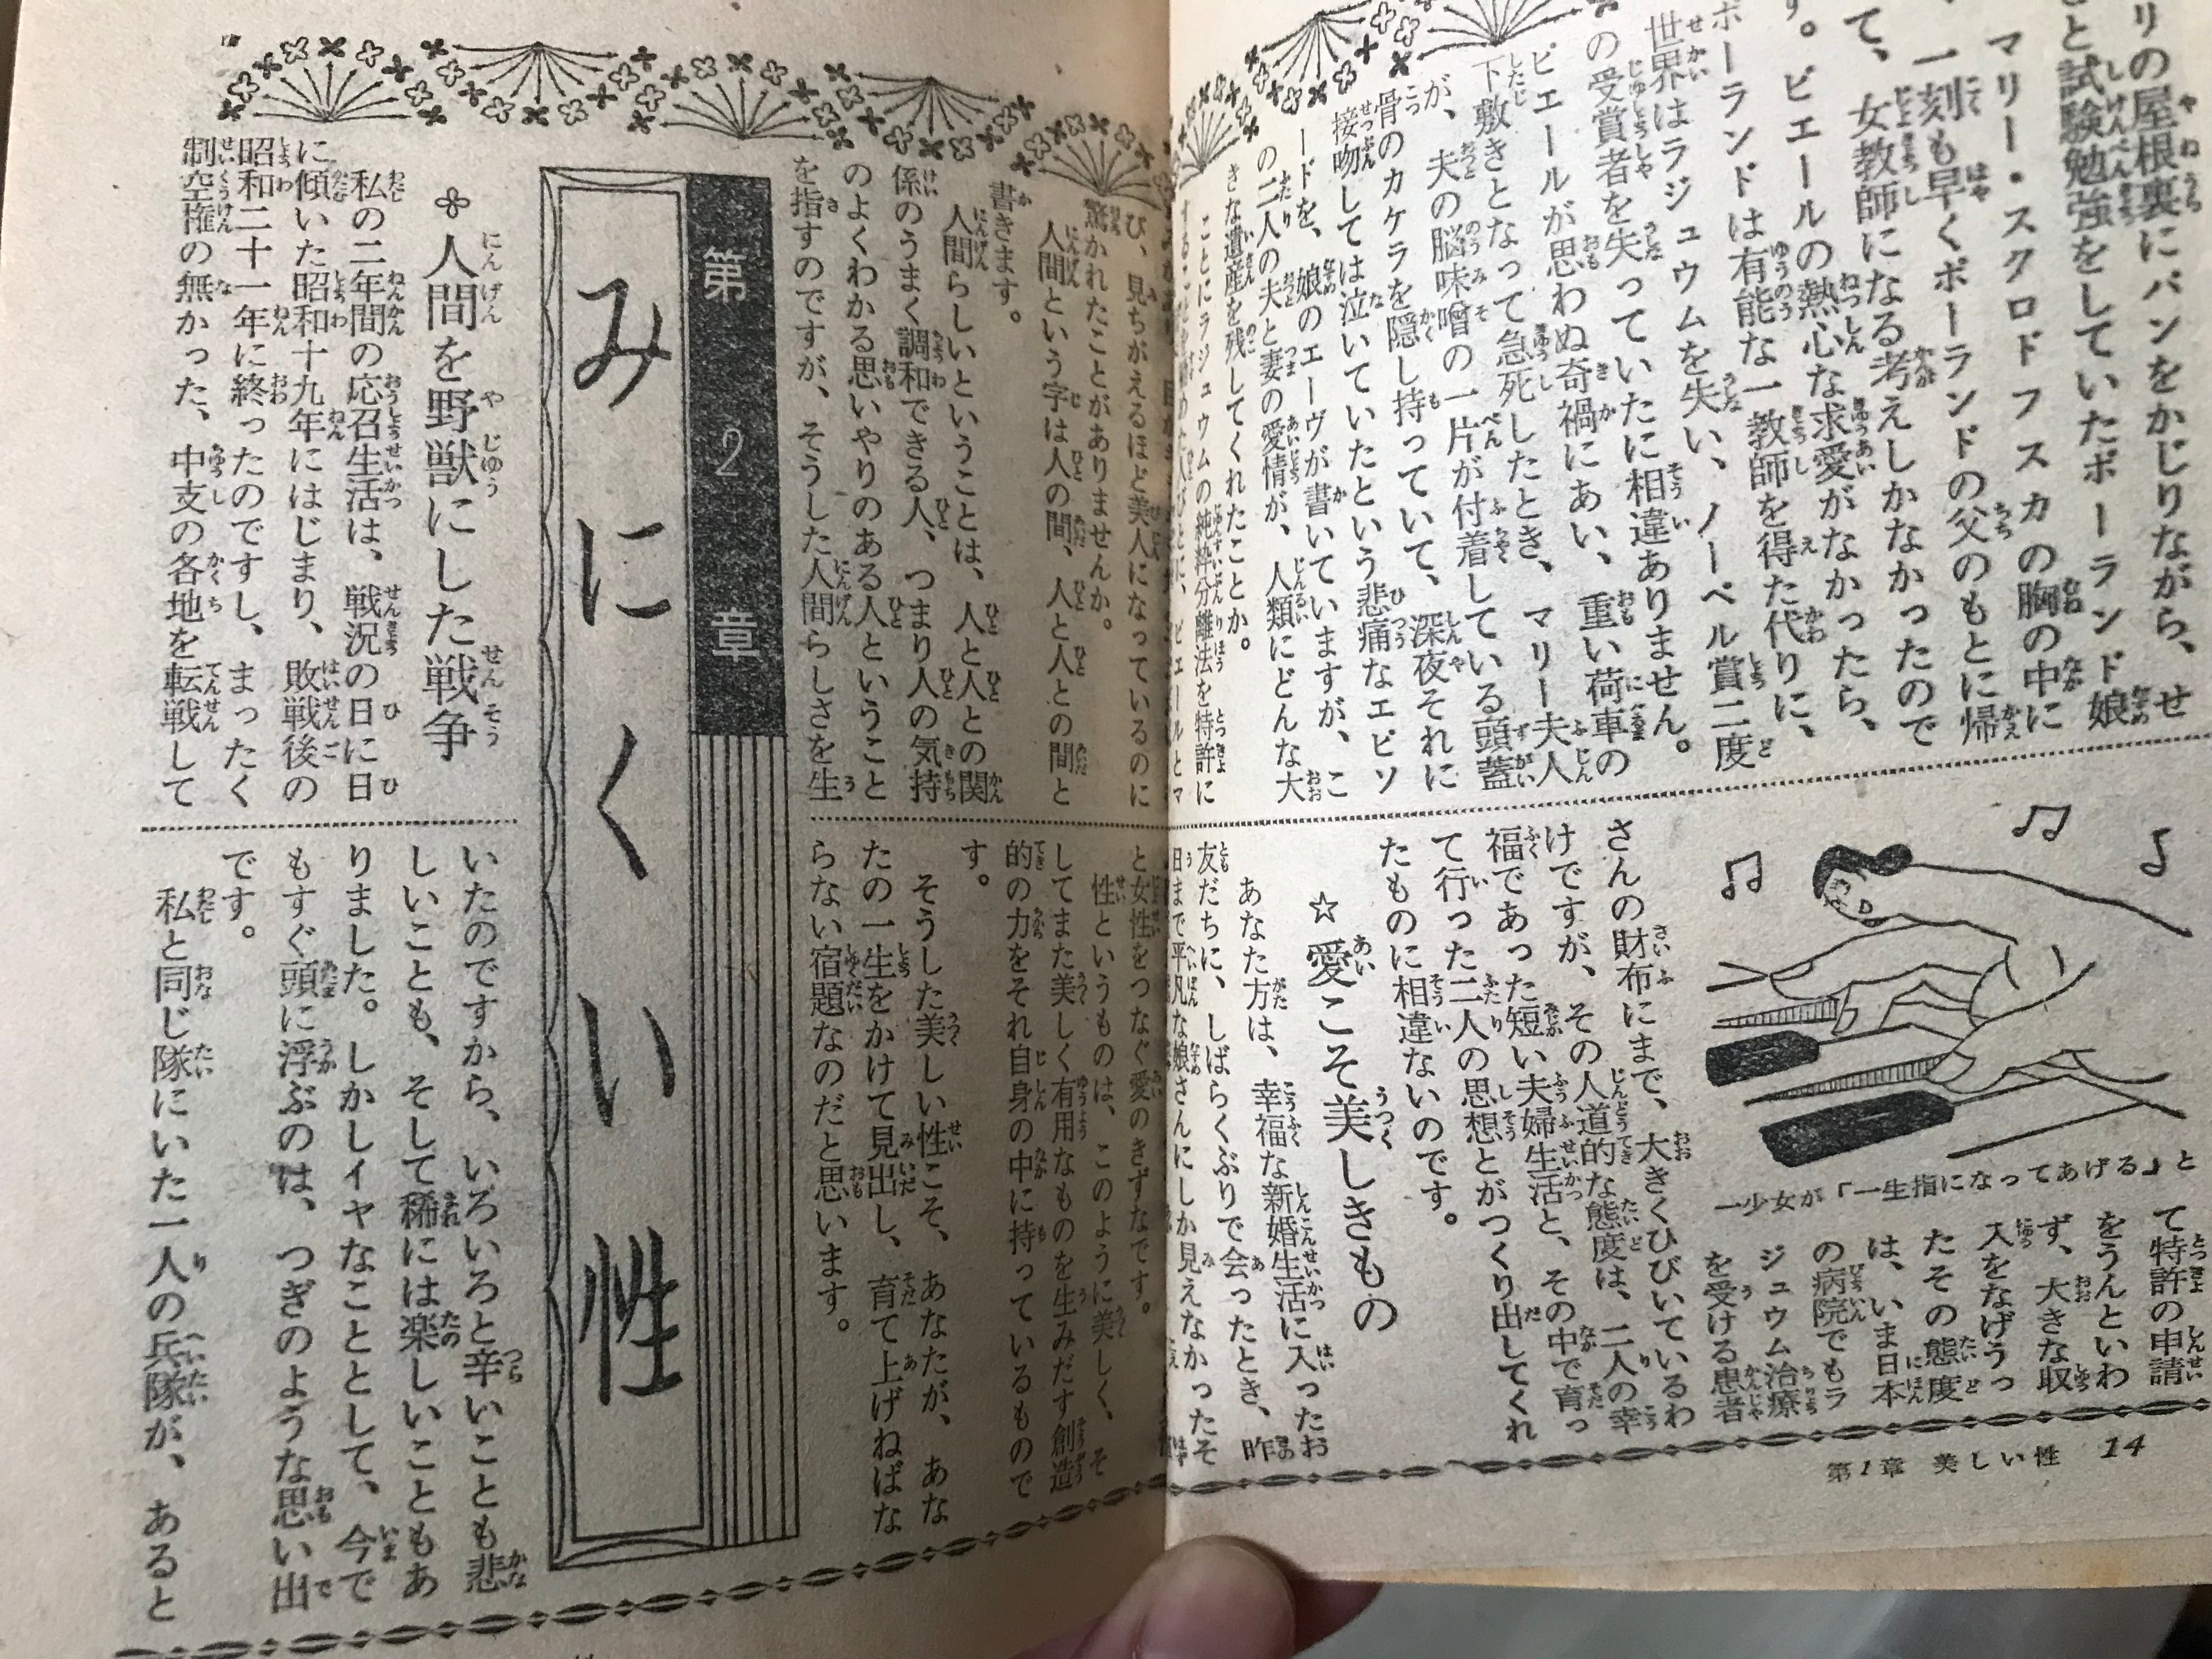 リの屋根裏にパンをかじりながら、せ
と試験勉強をしていたポーランド娘
マリー・スクロドフスカの胸の中に
一刻も早くポーランドの父のもとに帰
て、女教師になる考えしかなかったので
す。ピエールの熱心な求愛がなかったら、
ポーランドは有能な一教師を得た代りに、
世界はラジュウムを失い、ノーベル賞二度
の受賞者を失っていたに相違ありません。
ピエールが思わぬ奇禍にあい、重い荷車の
下敷きとなって急死したとき、マリー夫人
が、夫の脳味噌の一片が付着している頭蓋
骨のカケラを隠し持っていて、深夜それに
接吻しては泣いていたという悲痛なエピソ
ードを、娘のエーヴが書いていますが、こ
の二人の夫と妻の愛情が、人類にどんな大
きな遺産を残してくれたことか。
ことにラジュウムの純粋分離法を特許に
一少女が「一生指になってあげる」と
て特許の申請
をうんといわ
ず、大きな収
入をなげうっ
たその態度
は、いま日本
の病院でもラ
ジュウム治療
を受ける患者
さんの財布にまで、大きくひびいているわ
けですが、その人道的な態度は、二人の幸
福であった短い夫婦生活と、その中で育っ
て行った二人の思想とがつくり出してくれ
たものに相違ないのです。
☆愛こそ美しきもの
あなた方は、幸福な新婚生活に入ったお
友だちに、しばらくぶりで会ったとき、昨
日まで平凡な娘さんにしか見えなかったそ
第1章 美しい性 14
び、見ちがえるほど美人になっているのに
驚かれたことがありませんか。
人間という字は人の間、人と人との間と
書きます。
人間らしいということは、人と人との関
係のうまく調和できる人、つまり人の気持
のよくわかる思いやりのある人ということ
を指すのですが、そうした人間らしさを生
と女性をつなぐ愛のきずなです。
性というものは、このように美しく、そ
してまた美しく有用なものを生みだす創造
的の力をそれ自身の中に持っているもので
す。
そうした美しい性こそ、あなたが、あな
たの一生をかけて見出し、育て上げねばな
らない宿題なのだと思います。
第2章
みにくい性
人間を野獣にした戦争
私の二年間の応召生活は、戦況の日に日
に傾いた昭和十九年にはじまり、敗戦後の
昭和二十一年に終ったのですし、まったく
制空権の無かった、中支の各地を転戦して
いたのですから、いろいろと辛いことも悲
しいことも、そして稀には楽しいこともあ
りました。しかしイヤなこととして、今で
もすぐ頭に浮ぶのは、つぎのような思い出
です。
私と同じ隊にいた一人の兵隊が、あると